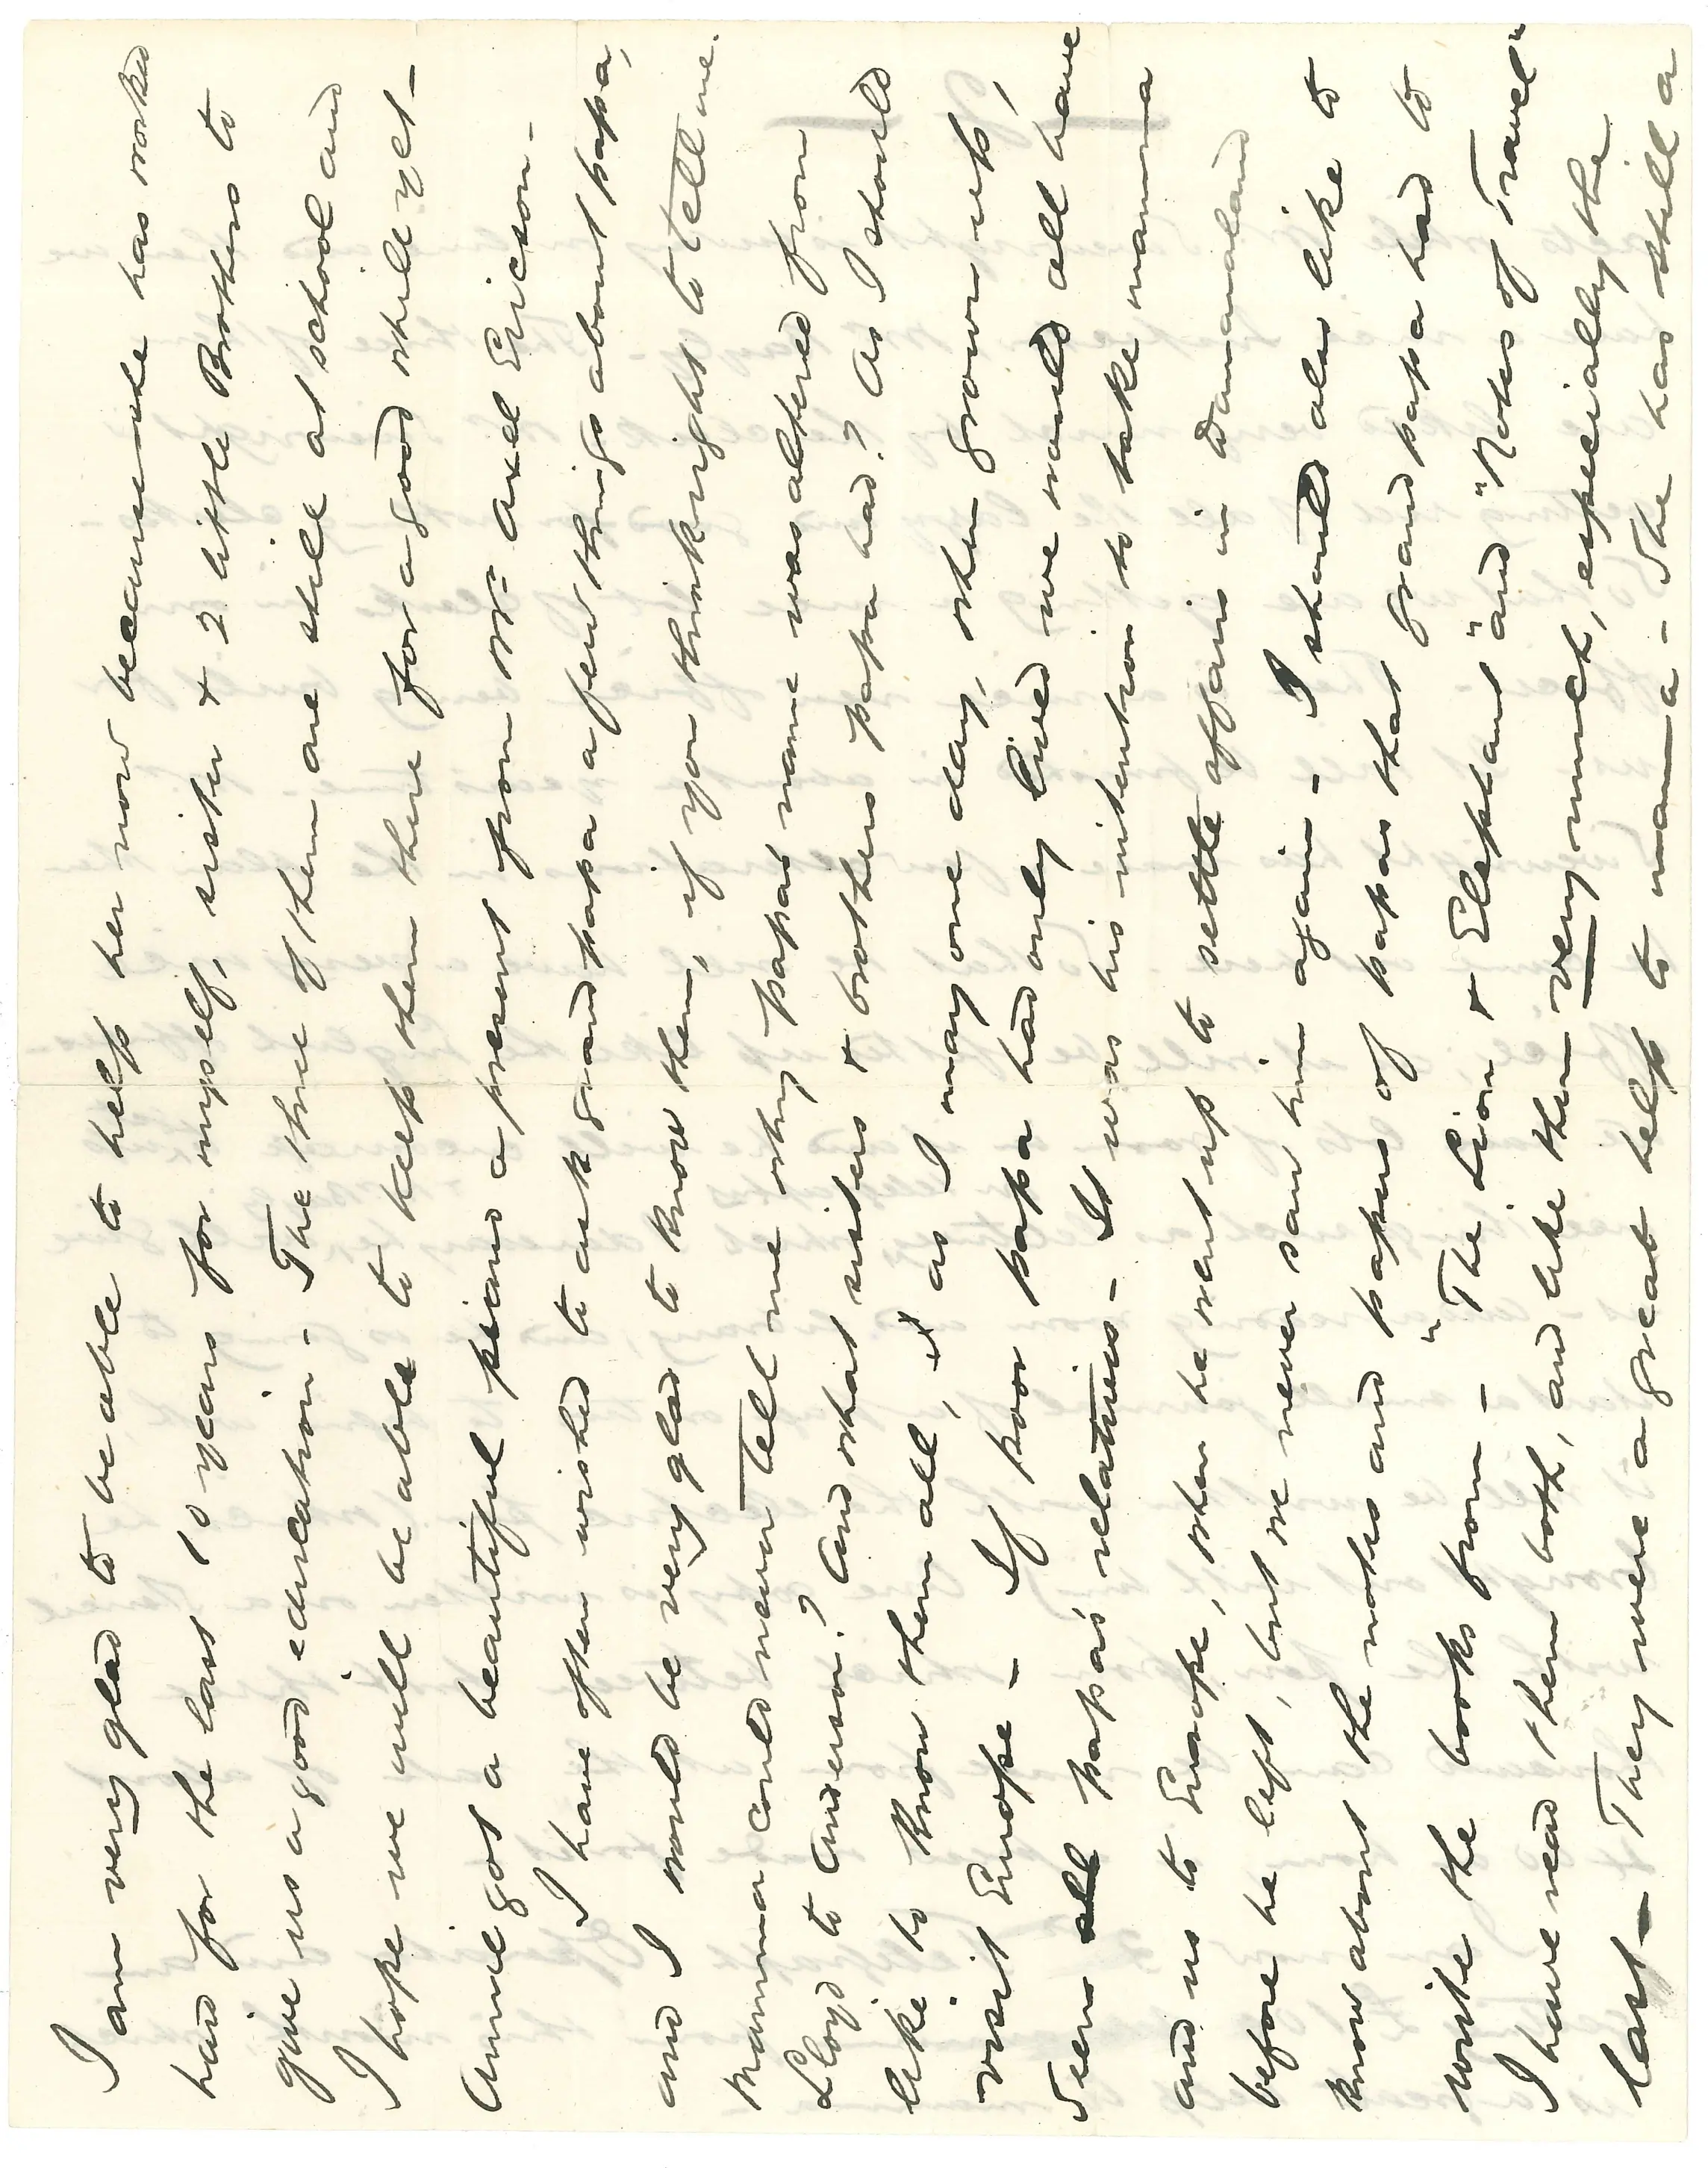 I am very glad to be able to help her now because she has worked
hard for the last 10 years for myself, sister & 2 little Brothers to
give us a good education - The three of them are still at school and
I hope we will be able to keep them there for a good while yet -
Annie got a beautiful piano a present from Mr: Axel Ericson -
I have often wished to ask grandpapa a few things about papa,
and I would be very glad to know them, if you think right to tell me.
Mamma could never tell me why papas name was altered from
Lloyd to Anderson? And what sisters & brothers papa had? As I should
like to know them all, as I may one day, when grown up,
visit Europe - If poor papa had only lived we would all have
seen all papa's relatives - It was his intention to take mamma
and us to Europe, when he went up to settle affairs in Damaraland
before he left, but we never saw him again - I should also like to
know about the notes and papers of papas that grandpapa had to
write the books from - "The Lion & Elephant" and "Notes of Travel"
I have read them both, and like them very much, especially the
last - They were a great help to mama - She has still a